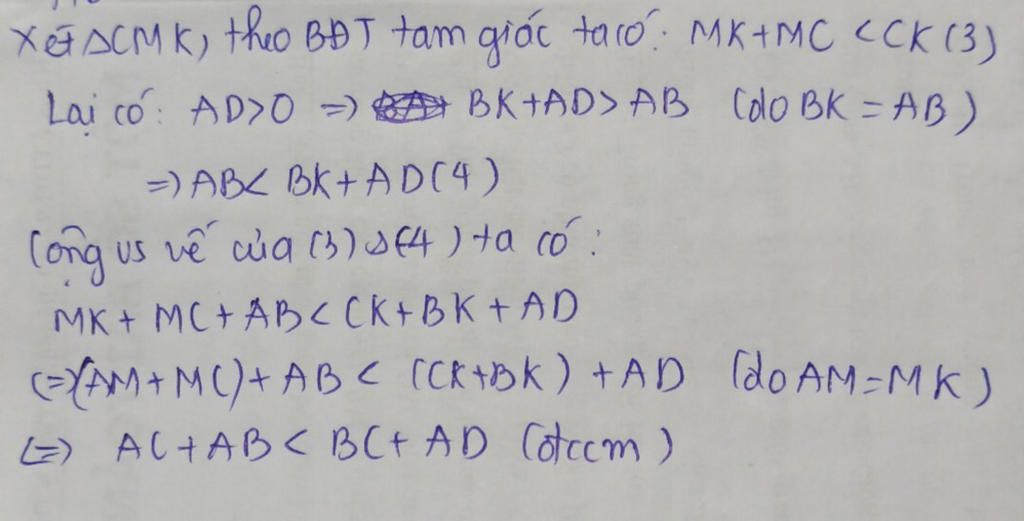 Xét ΔCMK, theo BĐT tam giác ta có: MK+MC <CK (3)
Lại có: AD>0 => BK+AD> AB (do BK = AB)
=> AB< BK+AD(4)
Cộng vs vế của (3) & (4) ta có:
MK+ MC+AB< CK+BK+AD
<=>(AM+MC)+AB< (CK+BK) +AD (do AM=MK)
<=> AC+AB< BC+ AD (đccm)